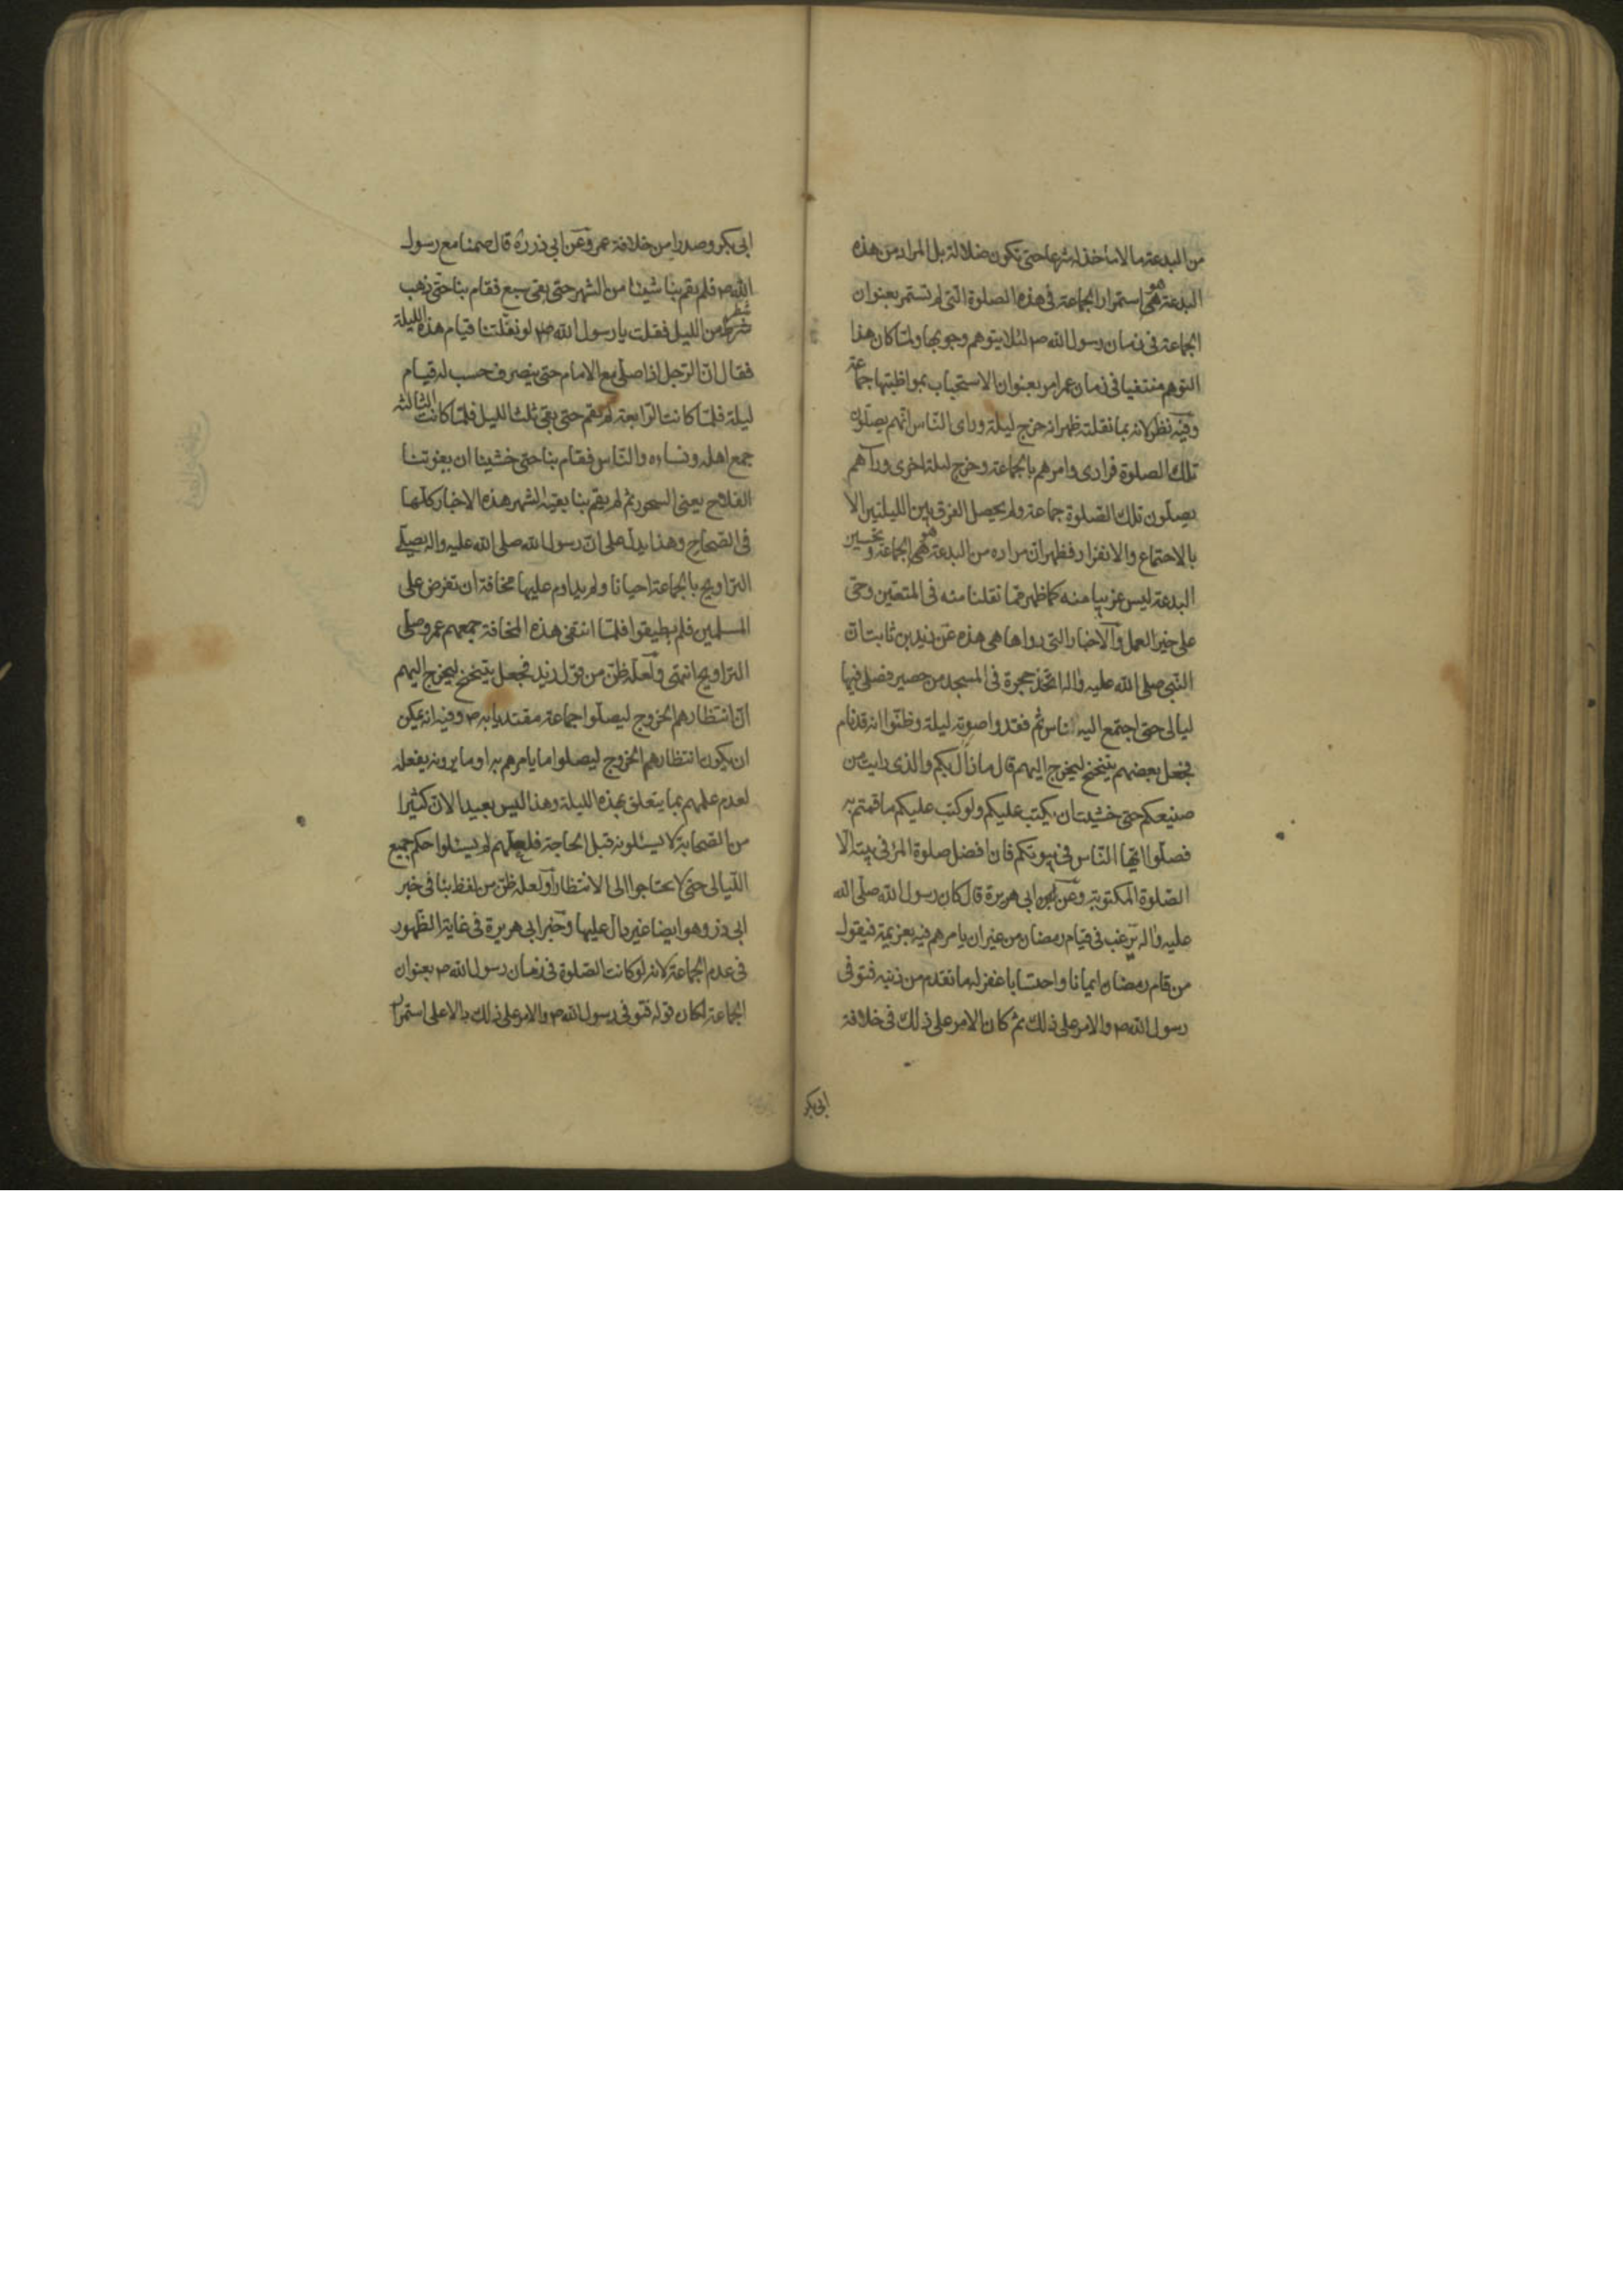 من البدعة ما لا مأخذ له شرعا حتى تكون ضلالة بل المراد من هذه
البدعة هو استمرار الجماعة فى هذه الصلوة التى لم تستمر بعنوان
الجماعة فى زمان رسول الله ص لئلا يتوهم وجوبها ولما كان هذا
التوهم منتفيا فى زمان عمر امر بعنوان الاستحباب بمواظبتها جماعة
وفيه نظر لانه بما نقلته ظهر انه خرج ليلة وراى الناس انهم يصلون
تلك الصلوة فرادى وامرهم بالجماعة وخرج ليلة اخرى ورآهم
يصلون تلك الصلوة جماعة ولم يحصل الفرق بين الليلتين الا
بالاجتماع والانفراد فظهر ان مراده من البدعة هو الجماعة وتحسين
البدعة ليس غريبا منه كما ظهر مما نقلنا منه فى المتعتين وحى
على خير العمل والاخبار التى رواها هى هذه عن زيد بن ثابت ان
النبى صلى الله عليه واله اتخذ حجرة فى المسجد من حصير فصلى فيها
ليالى حتى اجتمع اليه اناس ثم فقدوا صوته ليلة وظنوا انه قد نام
فجعل بعضهم يتنحنح ليخرج اليهم قال ما زال بكم والذى رايت من
صنيعكم حتى خشيت ان يكتب عليكم ولو كتب عليكم ما قمتم به
فصلوا ايها الناس فى بيوتكم فان افضل صلوة المرء فى بيته الا
الصلوة المكتوبة وعن ابى هريرة قال كان رسول الله صلى الله
عليه واله يرغب فى قيام رمضان من غير ان يامرهم فيه بعزيمة فيقول
من قام رمضان ايمانا واحتسابا غفر له ما تقدم من ذنبه فتوفى
رسول الله ص والامر على ذلك ثم كان الامر على ذلك فى خلافة
ابى بكر
ابى بكر وصدرا من خلافة عمر وعن ابى ذر ره قال صمنا مع رسول
الله ص فلم يقم بنا شيئا من الشهر حتى بقى سبع فقام بنا حتى ذهب
شطر من الليل فقلت يا رسول الله ص لو نفلتنا قيام هذه الليلة
فقال ان الرجل اذا صلى مع الامام حتى ينصرف حسب له قيام
ليلة فلما كانت الرابعة لم يقم حتى بقى ثلث الليل فلما كانت الثالثة
جمع اهله ونساءه والناس فقام بنا حتى خشينا ان يفوتنا
الفلاح يعنى السحور ثم لم يقم بنا بقية الشهر هذه الاخبار كلها
فى الصحاح وهذا يدل على ان رسول الله صلى الله عليه واله يصلى
التراويح بالجماعة احيانا ولم يداوم عليها مخافة ان تفرض على
المسلمين فلم يطيقوا فلما انتفى هذه المخافة جمعهم عمر وصلى
التراويح انتهى ولعله ظن من قول زيد فجعل يتنحنح ليخرج اليهم
ان انتظارهم الخروج ليصلوا جماعة مقتديا به ص وفيه انه يمكن
ان يكون انتظارهم الخروج ليصلوا ما يامرهم به او ما يرونه يفعله
لعدم علمهم بما يتعلق بهذه الليلة وهذا ليس بعيدا لان كثيرا
من الصحابة لا يسئلونه قبل الحاجة فلعلهم لم يسئلوا حكم جميع
الليالى حتى لا يحتاجوا الى الانتظار ولعله ظن من لفظ بنا فى خبر
ابى ذر وهو ايضا غير دال عليها وخبر ابى هريرة فى غاية الظهور
فى عدم الجماعة لانه لو كانت الصلوة فى زمان رسول الله ص بعنوان
الجماعة لكان قوله فتوفى رسول الله ص والامر على ذلك دالا على استمرار